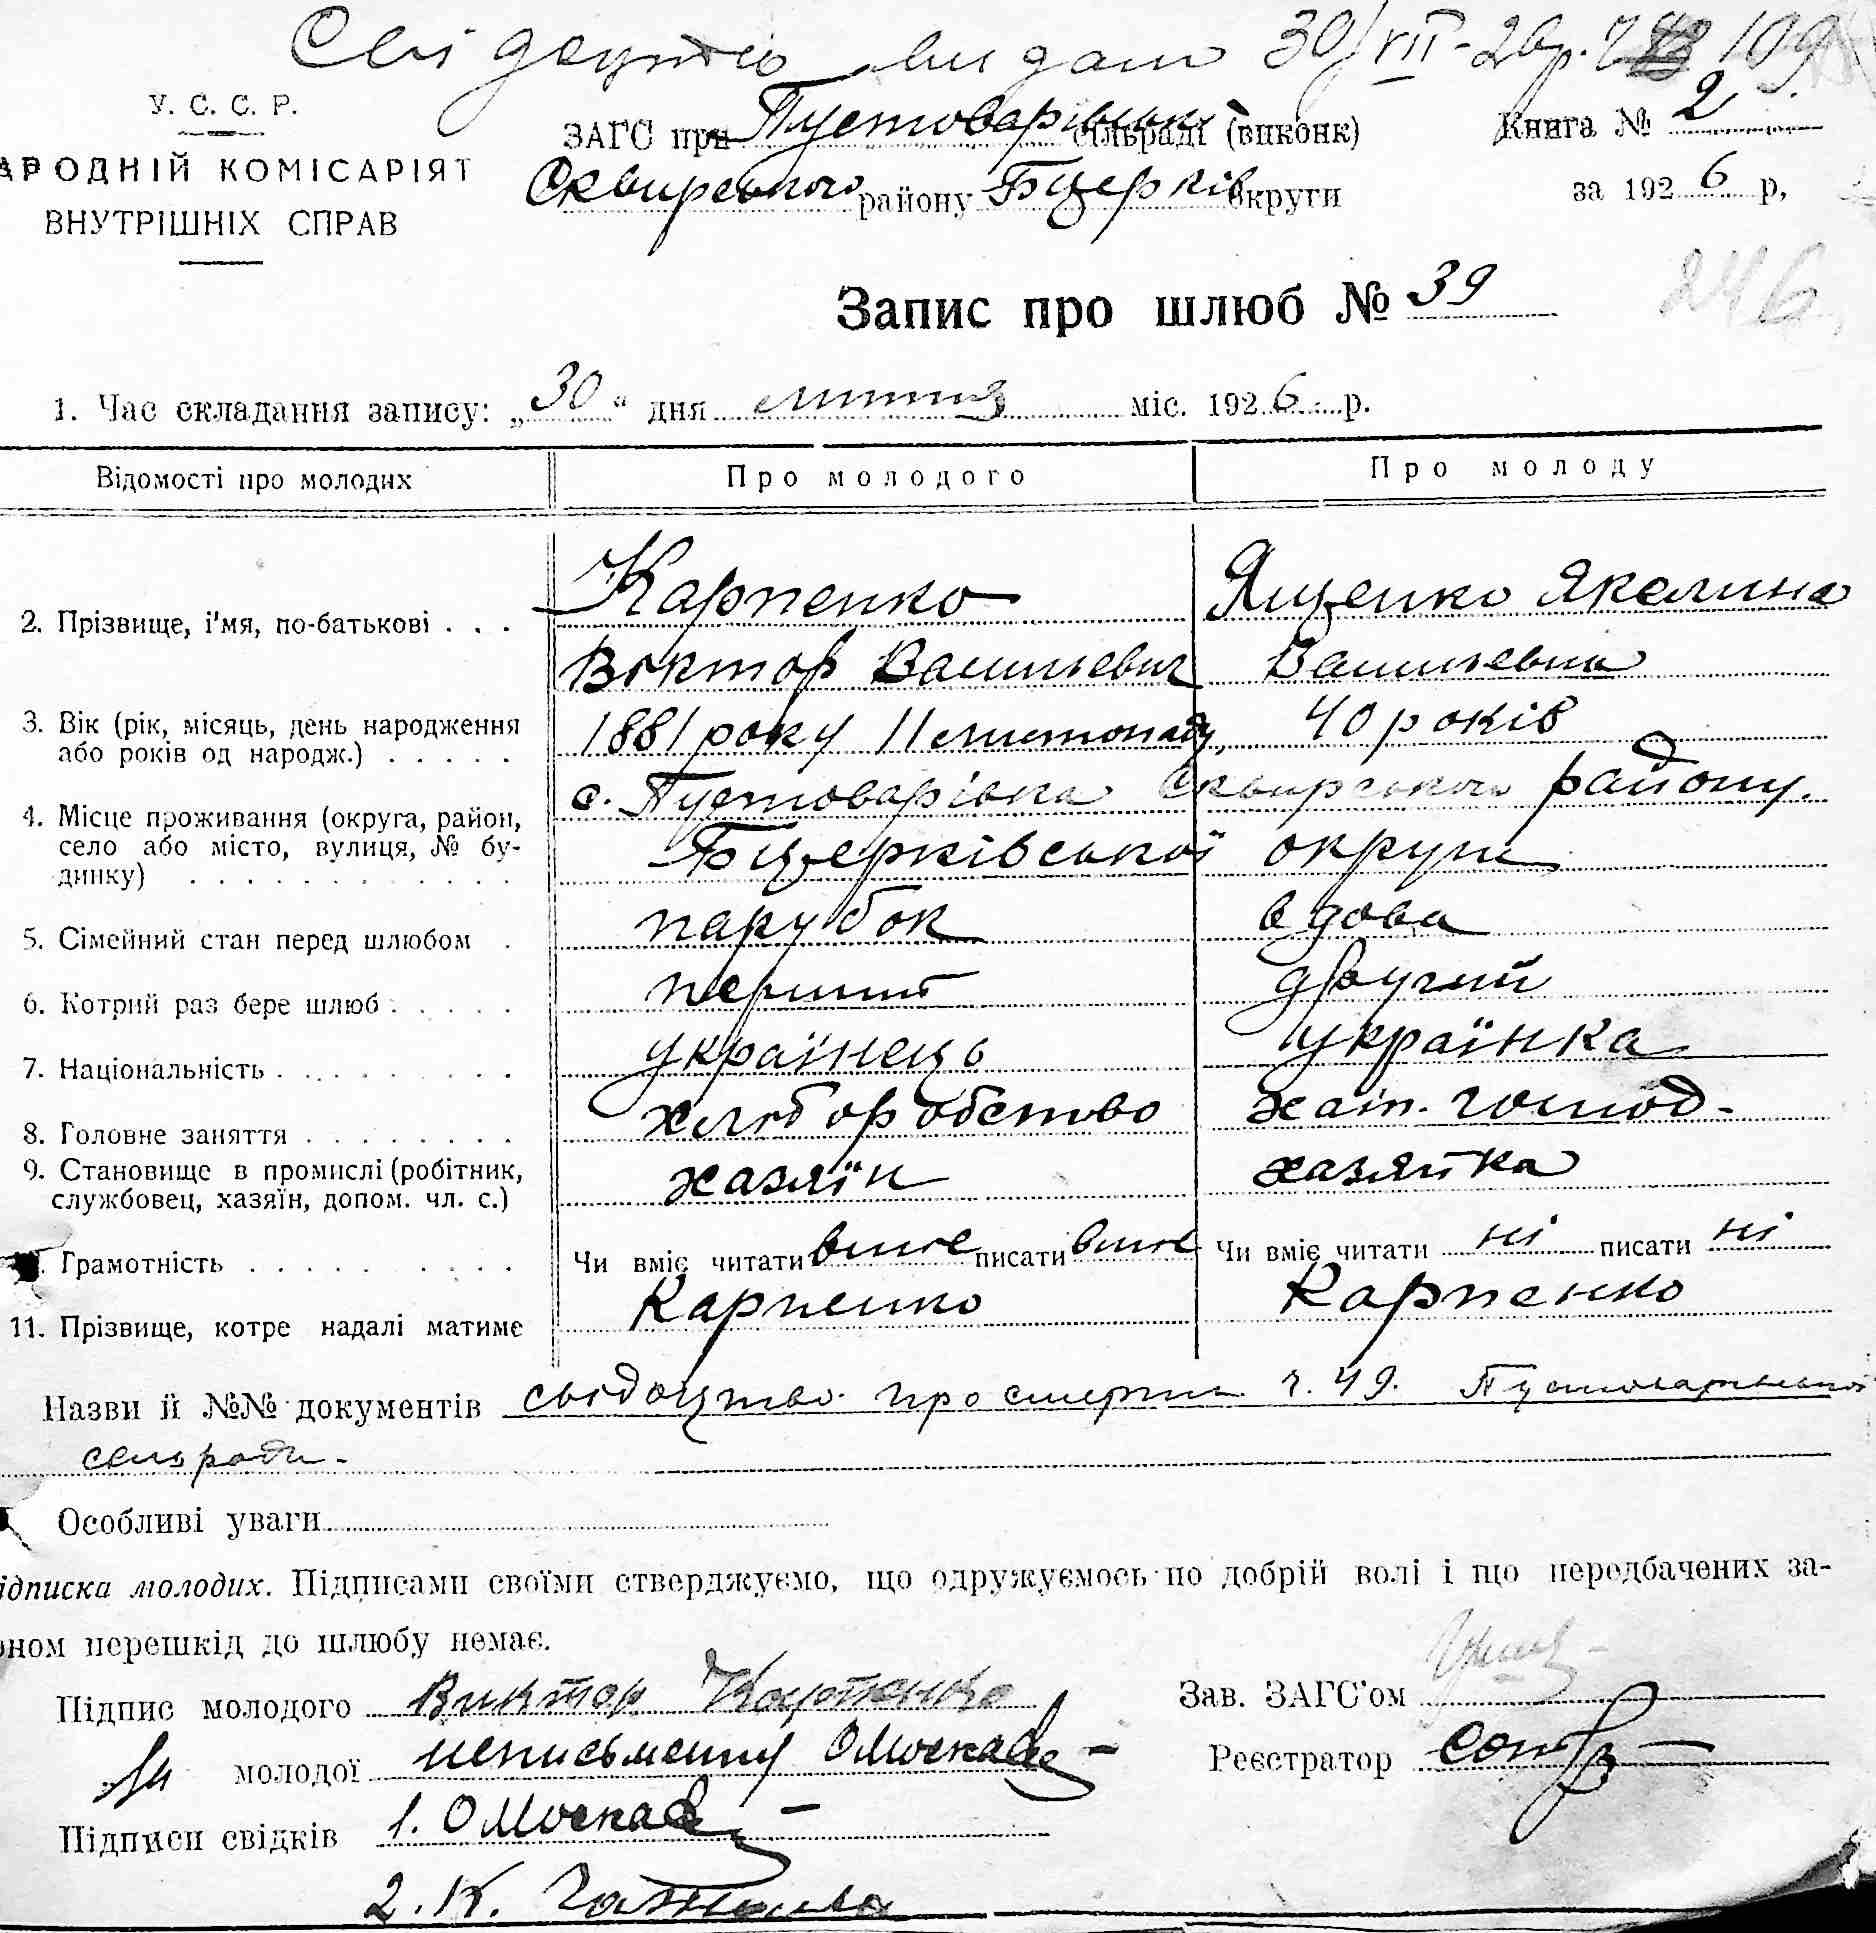 видано 30/VII-26р.
У. С. С. Р.
АРОДНІЙ КОМІСАРІЯТ
ВНУТРІШНІХ СПРАВ
ЗАГС при Пустоварівськ сільраді (виконк)
Сквирського району Бцерків округи
Книга № 2
за 1926 р,
Запис про шлюб № 39
246
1. Час складання запису: „30“ дня липня міс. 1926 р.
Відомості про молодих Про молодого Про молоду
2. Прізвище, і'мя, по-батькові . . . Карпенко Ященко Якелина
Віктор Васильевич Васильевна
3. Вік (рік, місяць, день народження
або років од народж.) . . . . . 1881 року 11 листопаду, 40 років
4. Місце проживання (округа, район,
село або місто, вулиця, № бу-
динку) . . . . . . . . . . . .
с. Пустоварівка Сквирського району.
Бцерківської округи
5. Сімейний стан перед шлюбом . парубок вдова
6. Котрий раз бере шлюб . . . . . перший другий
7. Національність . . . . . . . . . українець українка
8. Головне заняття . . . . . . . . хліборобство хатн. господ-
9. Становище в промислі (робітник,
службовец, хазяїн, допом. чл. с.) хазяїн хазяйка
Грамотність . . . . . . . . . Чи вміє читати вміє писати вміє Чи вміє читати ні писати ні
11. Прізвище, котре надалі матиме Карпенко Карпенко
Назви й №№ документів свідоцтво про смерть ч. 49. Пустоварівської
сельради.
Особливі уваги
ідписка молодих. Підписами своїми стверджуємо, що одружуємось по добрій волі і що передбачених за-
оном перешкід до шлюбу немає.
Підпис молодого Виктор Карпенко Зав. ЗАГС'ом
молодої неписьменну Реєстратор
Підписи свідків 1.
2. К.